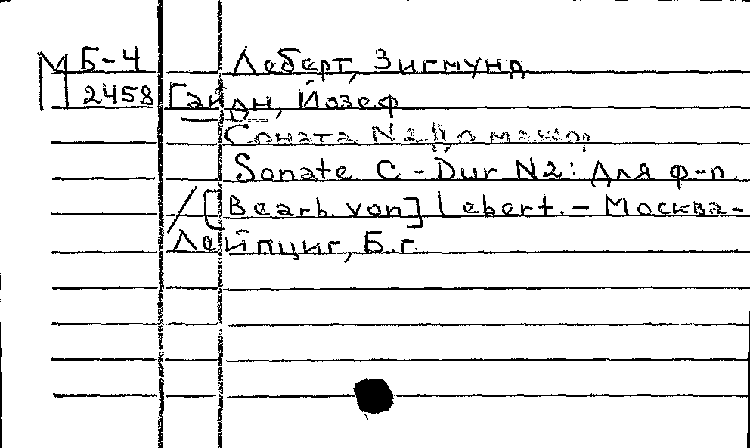 М Б-4 Леберт, Зигмунд
2458 Гайдн, Йозеф
Соната N2 До мажор
Sonate C-Dur N2: Для ф-п.
/[Bearb. von] Lebert. - Москва-
Лейпциг, Б.г.